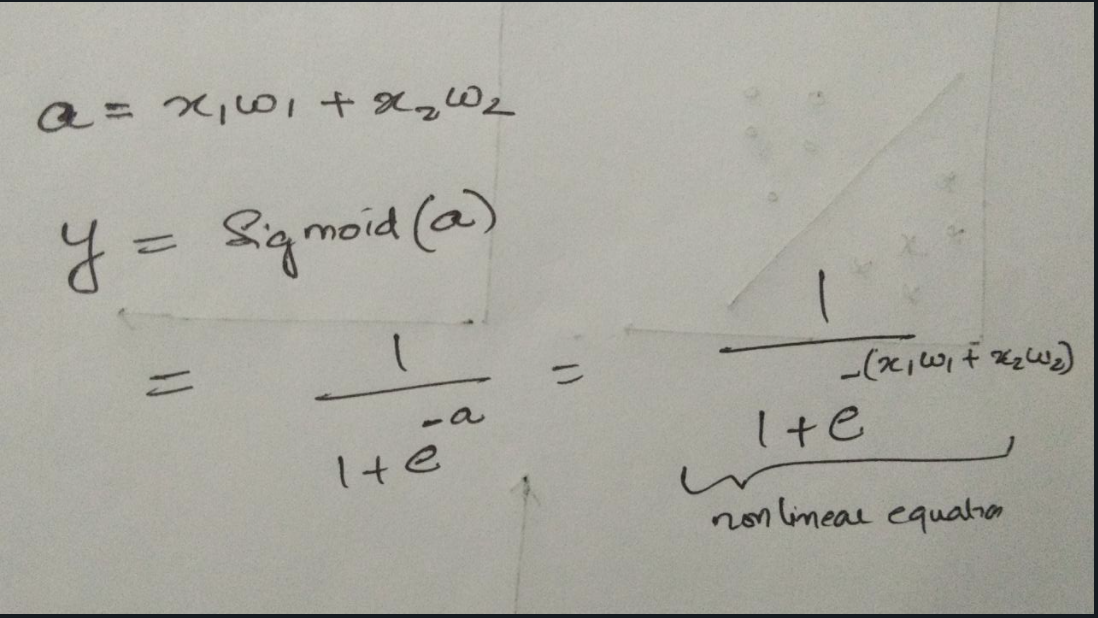 a = x₁ω₁ + x₂ω₂
y = Sigmoid(a)
= 1/(1+e^(-a)) = 1/(1+e^(-(x₁ω₁+x₂ω₂)))
nonlinear equation